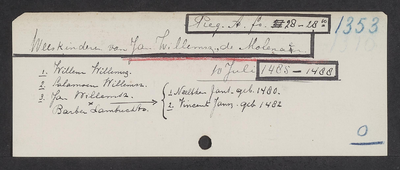 Reg. A. fo. 28 - 28vo
1353
Weeskinderen van Jan Willemsz. de Molenaar
10 Juli 1485 - 1488
1. Willem Willemsz.
2. Salomon Willemsz.
3. Jan Willemsz.
x
Barber Lambrechts.
1. Neeltken Jans. geb. 1480.
2. Vincent Jansz. geb. 1482
0